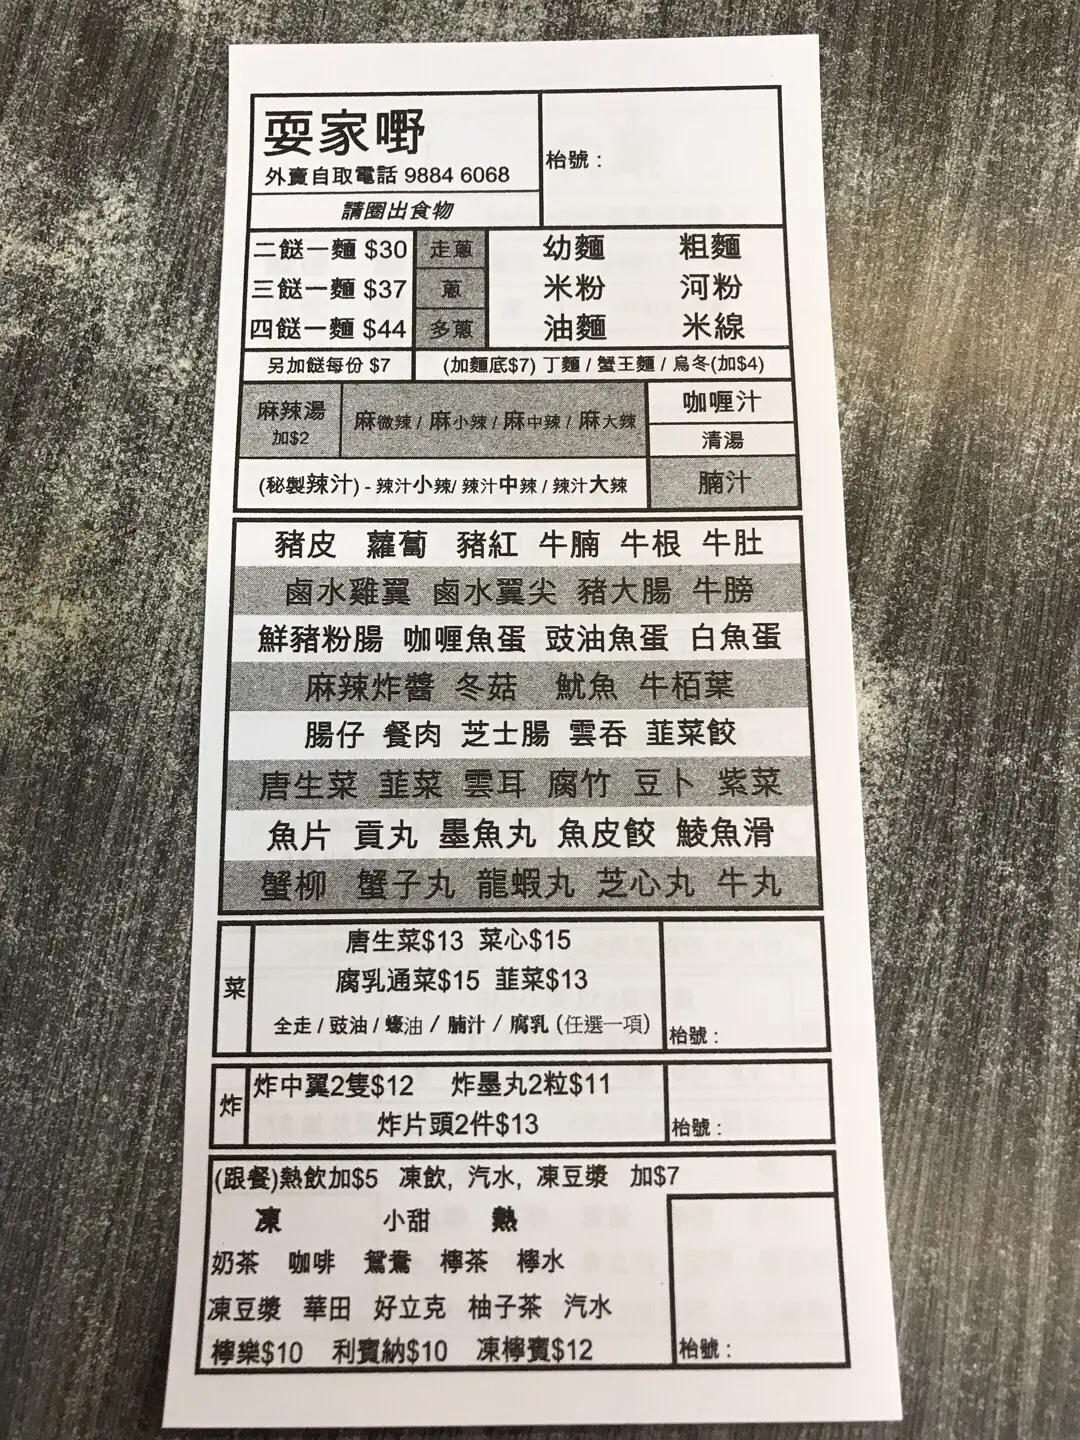 耍家嘢
外賣自取電話 9884 6068
枱號 :
請圈出食物
二餸一麵 $30
走蔥
幼麵 粗麵
三餸一麵 $37
蔥
米粉 河粉
四餸一麵 $44
多蔥
油麵 米線
另加餸每份 $7
(加麵底$7) 丁麵 / 蟹王麵 / 烏冬(加$4)
麻辣湯
加$2
麻微辣 / 麻小辣 / 麻中辣 / 麻大辣
咖喱汁
清湯
(秘製辣汁) - 辣汁小辣/ 辣汁中辣 / 辣汁大辣
腩汁
豬皮 蘿蔔 豬紅 牛腩 牛根 牛肚
鹵水雞翼 鹵水翼尖 豬大腸 牛膀
鮮豬粉腸 咖喱魚蛋 豉油魚蛋 白魚蛋
麻辣炸醬 冬菇 魷魚 牛栢葉
腸仔 餐肉 芝士腸 雲吞 韮菜餃
唐生菜 韮菜 雲耳 腐竹 豆卜 紫菜
魚片 貢丸 墨魚丸 魚皮餃 鯪魚滑
蟹柳 蟹子丸 龍蝦丸 芝心丸 牛丸
菜
唐生菜$13 菜心$15
腐乳通菜$15 韮菜$13
全走 / 豉油 / 蠔油 / 腩汁 / 腐乳 (任選一項)
枱號 :
炸
炸中翼2隻$12 炸墨丸2粒$11
炸片頭2件$13
枱號 :
(跟餐)熱飲加$5 凍飲, 汽水, 凍豆漿 加$7
凍 小甜 熱
奶茶 咖啡 鴛鴦 檸茶 檸水
凍豆漿 華田 好立克 柚子茶 汽水
檸樂$10 利賓納$10 凍檸賓$12
枱號 :